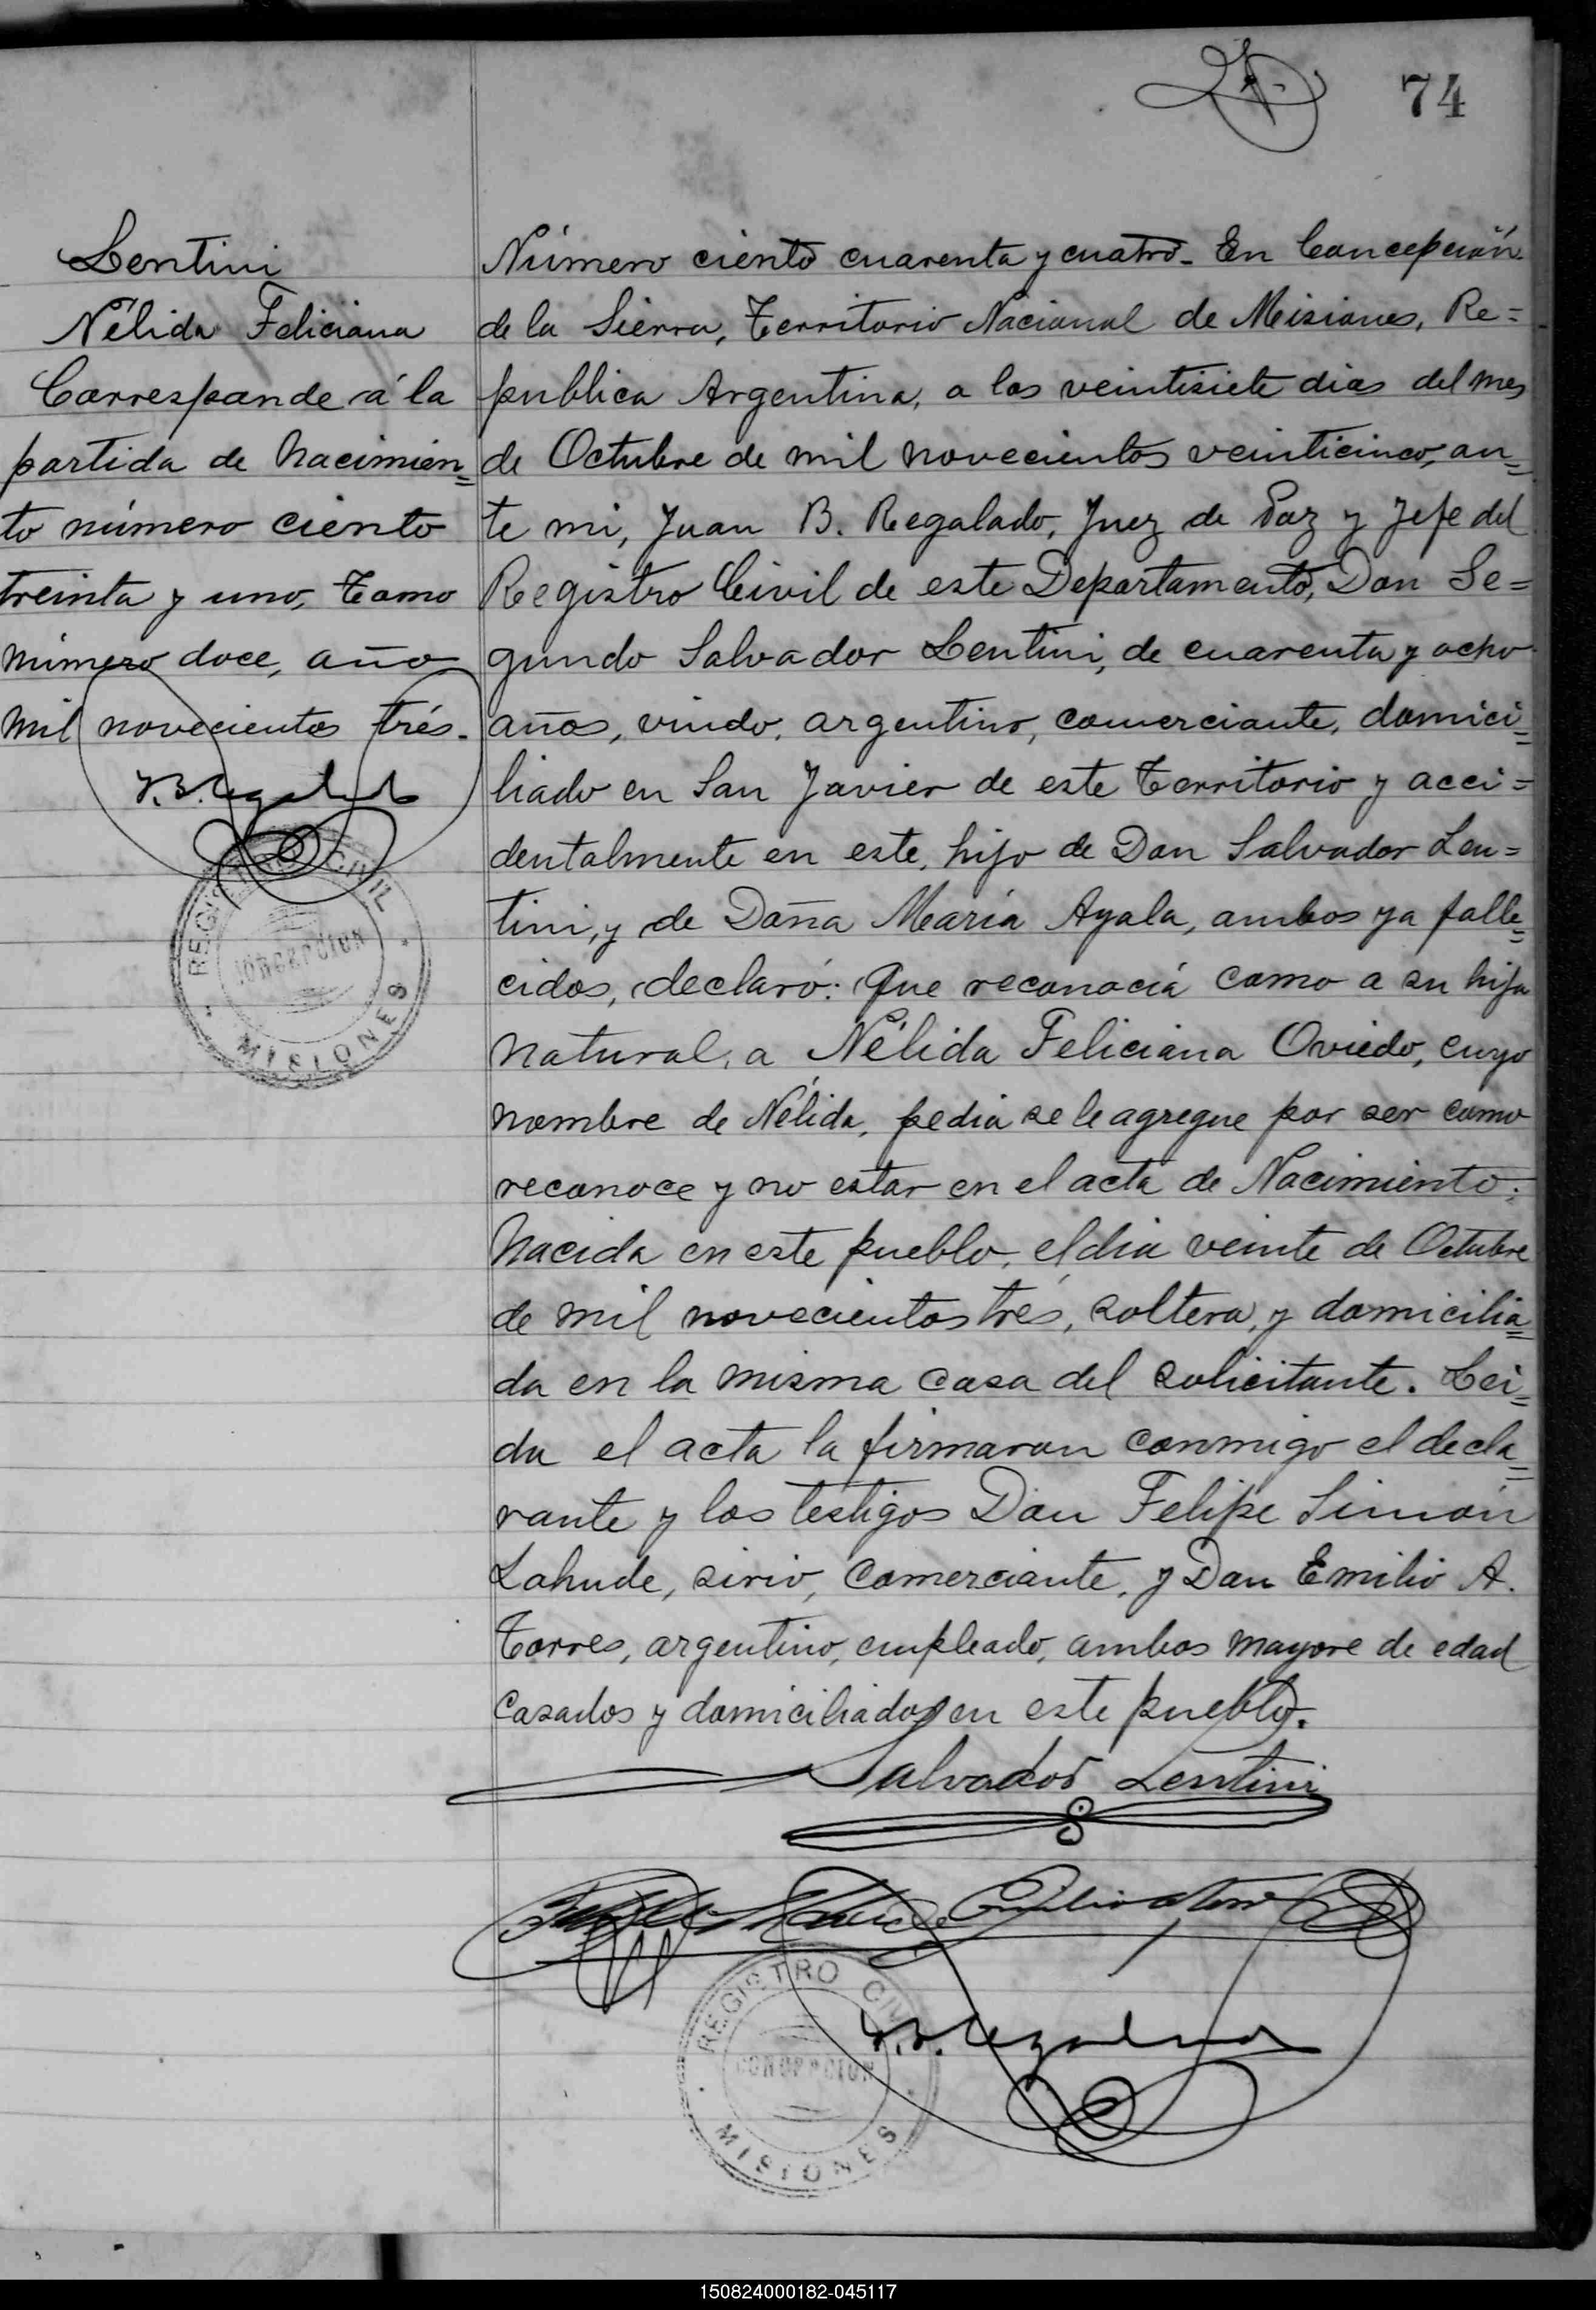 74
Lentini
Nélida Feliciana
Corresponde á la
partida de Nacimien=
to número ciento
treinta y uno, Tomo
número doce, año
mil novecientos trés.
REGISTRO CIVIL
CONCEPCION
MISIONES
Número ciento cuarenta y cuatro. En Concepción
de la Sierra, Territorio Nacional de Misiones, Re=
publica Argentina, a los veintisiete dias del mes
de Octubre de mil novecientos veinticinco, an=
te mi, Juan B. Regalado, Juez de Paz y Jefe del
Registro Civil de este Departamento, Don Se=
gundo Salvador Lentini, de cuarenta y ocho
años, viudo, argentino, comerciante, domici=
liado en San Javier de este Territorio y acci=
dentalmente en este, hijo de Don Salvador Len=
tini, y de Doña María Ayala, ambos ya falle=
cidos, declaró: Que reconocía como a su hija
natural, a Nélida Feliciana Oviedo, cuyo
nombre de Nélida, pedia se le agregue por ser como
reconoce y no estar en el acta de Nacimiento:
Nacida en este pueblo, el dia veinte de Octubre
de mil novecientos trés, soltera, y domicilia=
da en la misma casa del solicitante. Lei=
da el acta la firmaron conmigo el decla=
rante y los testigos Don Felipe Simón
Lahude, sirio, comerciante, y Don Emilio A.
Torres, argentino, empleado, ambos mayore de edad
casados y domiciliados en este pueblo.
Salvador Lentini
REGISTRO CIVIL
CONCEPCION
MISIONES
150824000182-045117